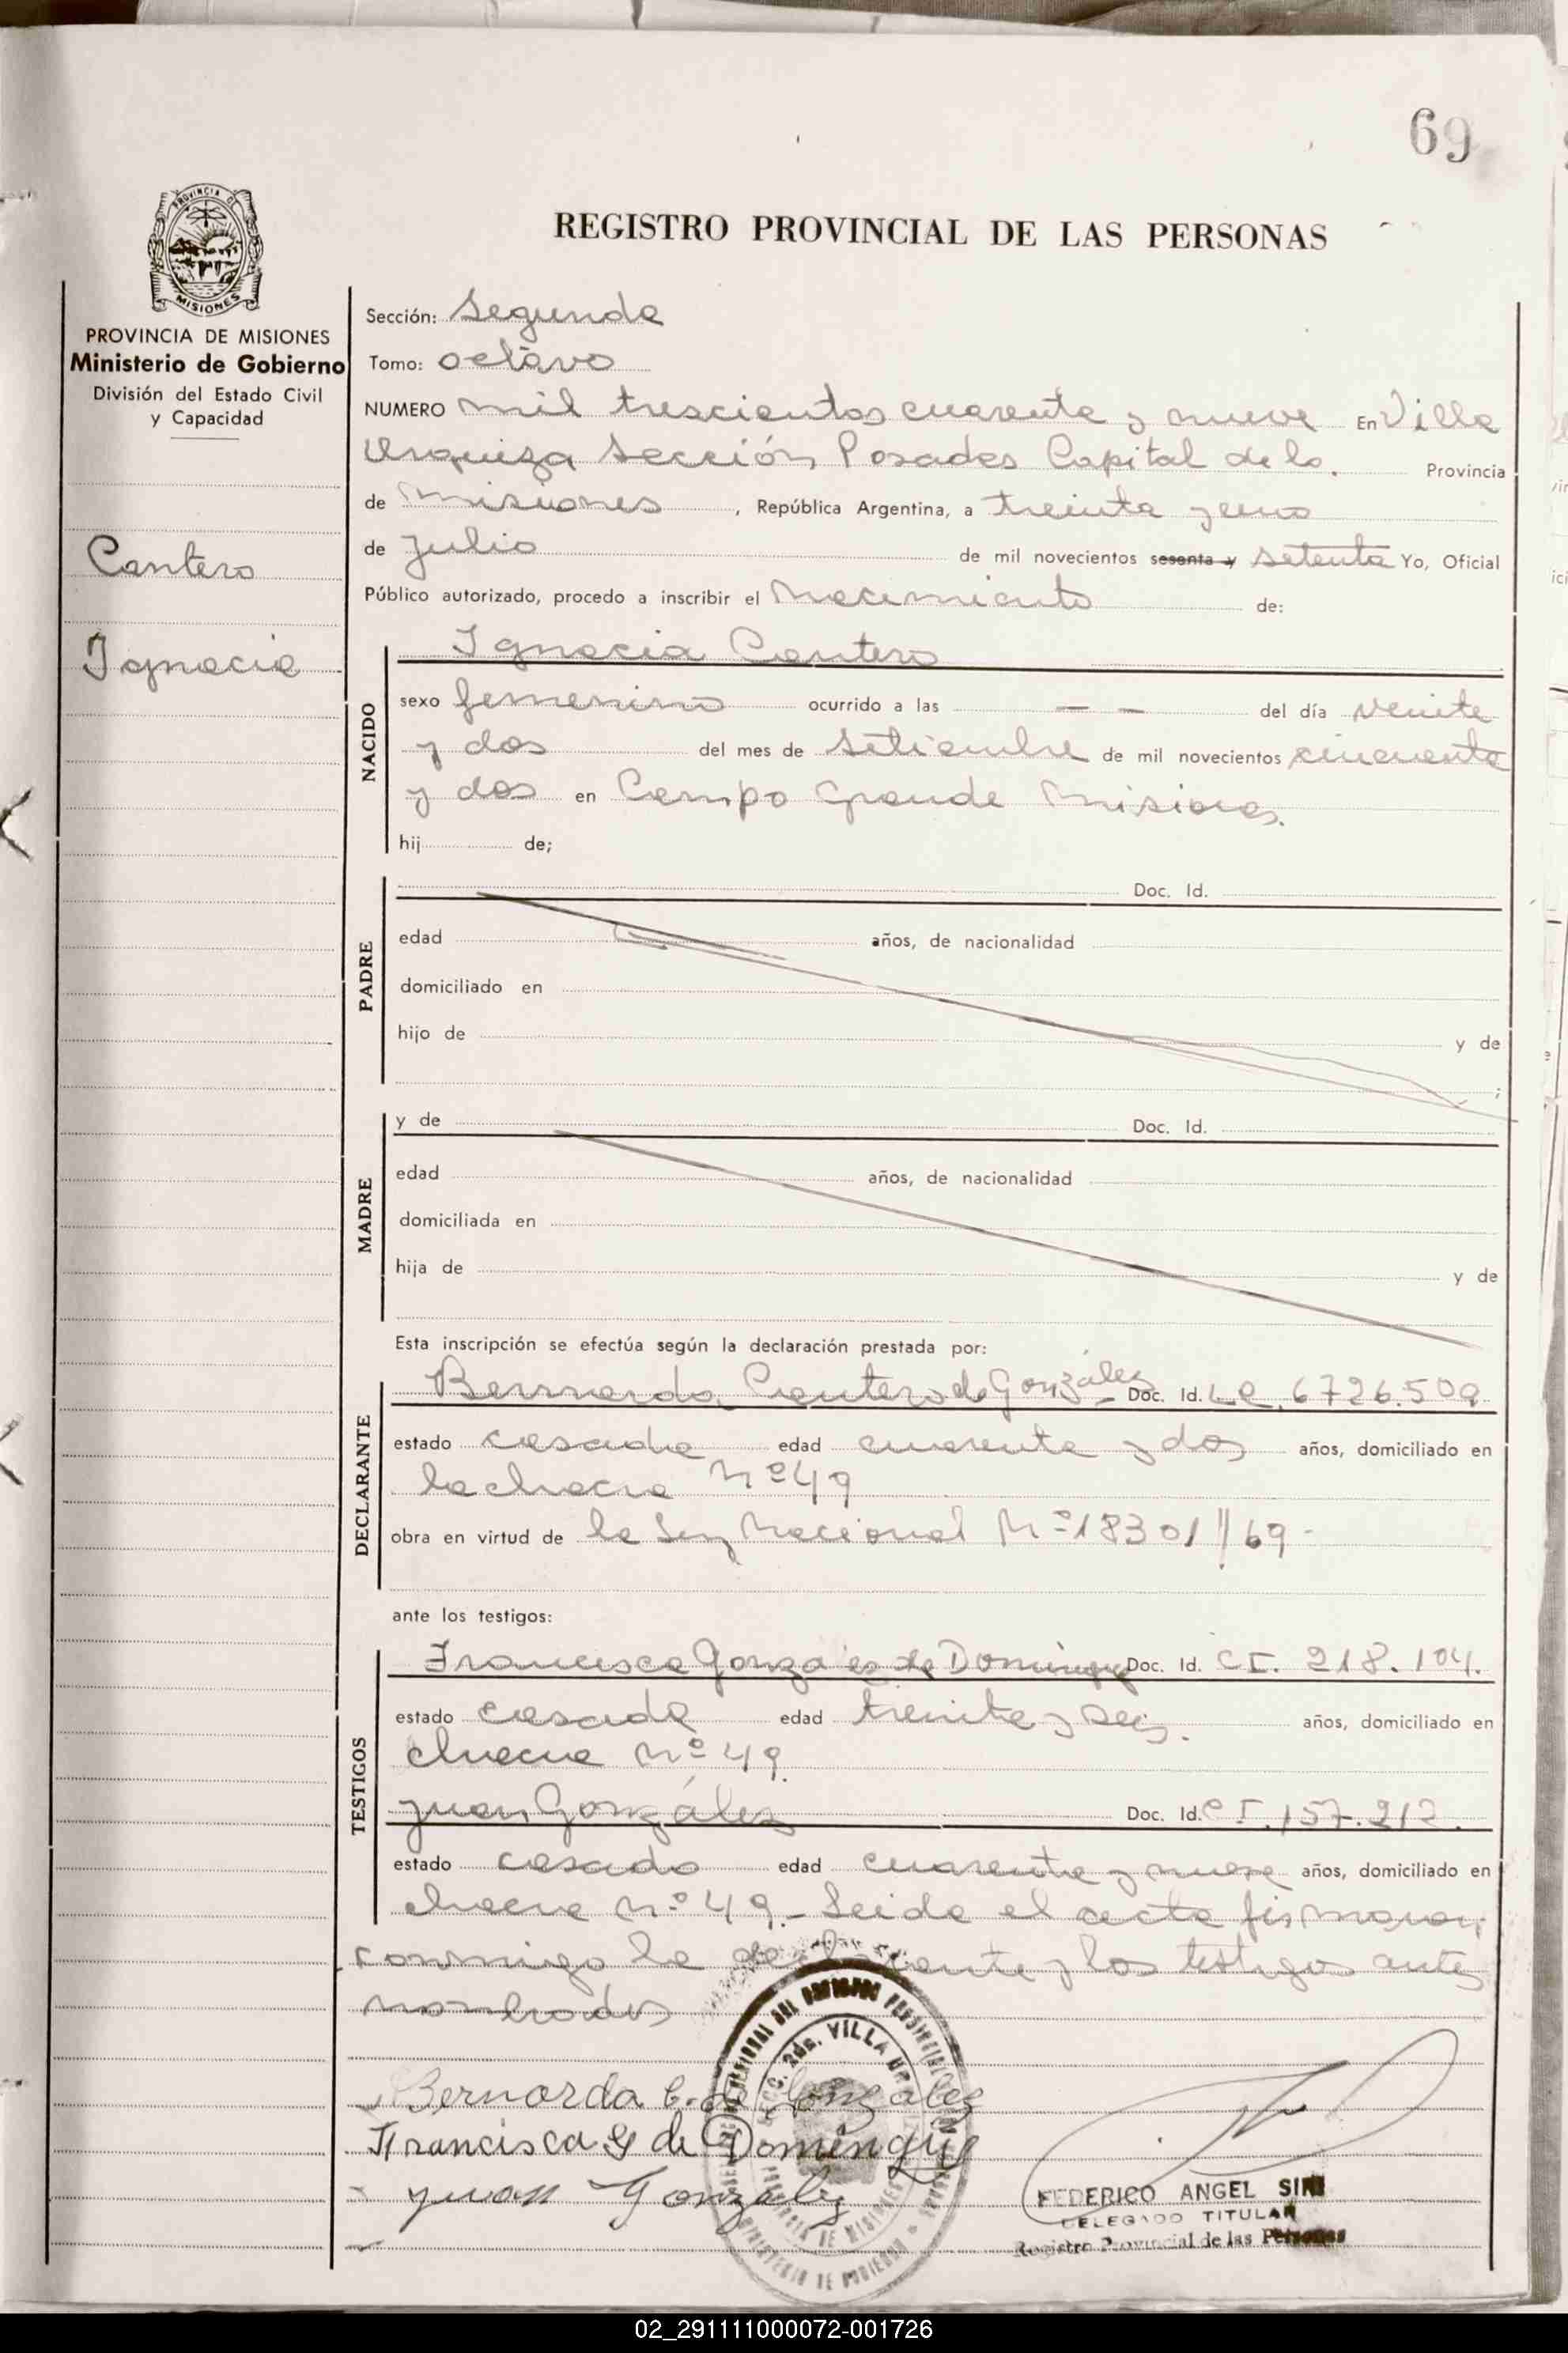 69
REGISTRO PROVINCIAL DE LAS PERSONAS
PROVINCIA DE MISIONES
Ministerio de Gobierno
División del Estado Civil
y Capacidad
Cantero
Ignacia
Sección: Segunda
Tomo: octavo
NUMERO mil trescientos cuarenta y nueve En Villa
Urquiza Sección Posadas Capital de la Provincia
de Misiones, República Argentina, a treinta y uno
de Julio de mil novecientos sesenta y setenta Yo, Oficial
Público autorizado, procedo a inscribir el Nacimiento de:
NACIDO
Ignacia Cantero
sexo femenino ocurrido a las — — del día veinte
y dos del mes de setiembre de mil novecientos cincuenta
y dos en Campo Grande Misiones.
hij de;
PADRE
Doc. Id.
edad años, de nacionalidad
domiciliado en
hijo de y de
;
MADRE
y de Doc. Id.
edad años, de nacionalidad
domiciliada en
hija de y de
Esta inscripción se efectúa según la declaración prestada por:
DECLARANTE
Bernarda Cantero de González Doc. Id. L.C. 6726.509
estado casada edad cuarenta y dos años, domiciliado en
la chacra Nº 49
obra en virtud de la Ley Nacional Nº 18301//69-
ante los testigos:
TESTIGOS
Francisca González de Dominguez Doc. Id. C.I. 218.104.
estado casada edad treinta y seis. años, domiciliado en
chacra Nº 49.
Juan González Doc. Id. C.I. 157.212.
estado casado edad cuarenta y nueve años, domiciliado en
chacra Nº 49.- Leida el acta firmaron
conmigo la declarante y los testigos antes
nombrados
Bernarda C. de Gonzalez
Francisca G de Dominguez
Juan Gonzalez
2da. VILLA
FEDERICO ANGEL
DELEGADO TITULAR
Registro Provincial de las Personas
02_291111000072-001726